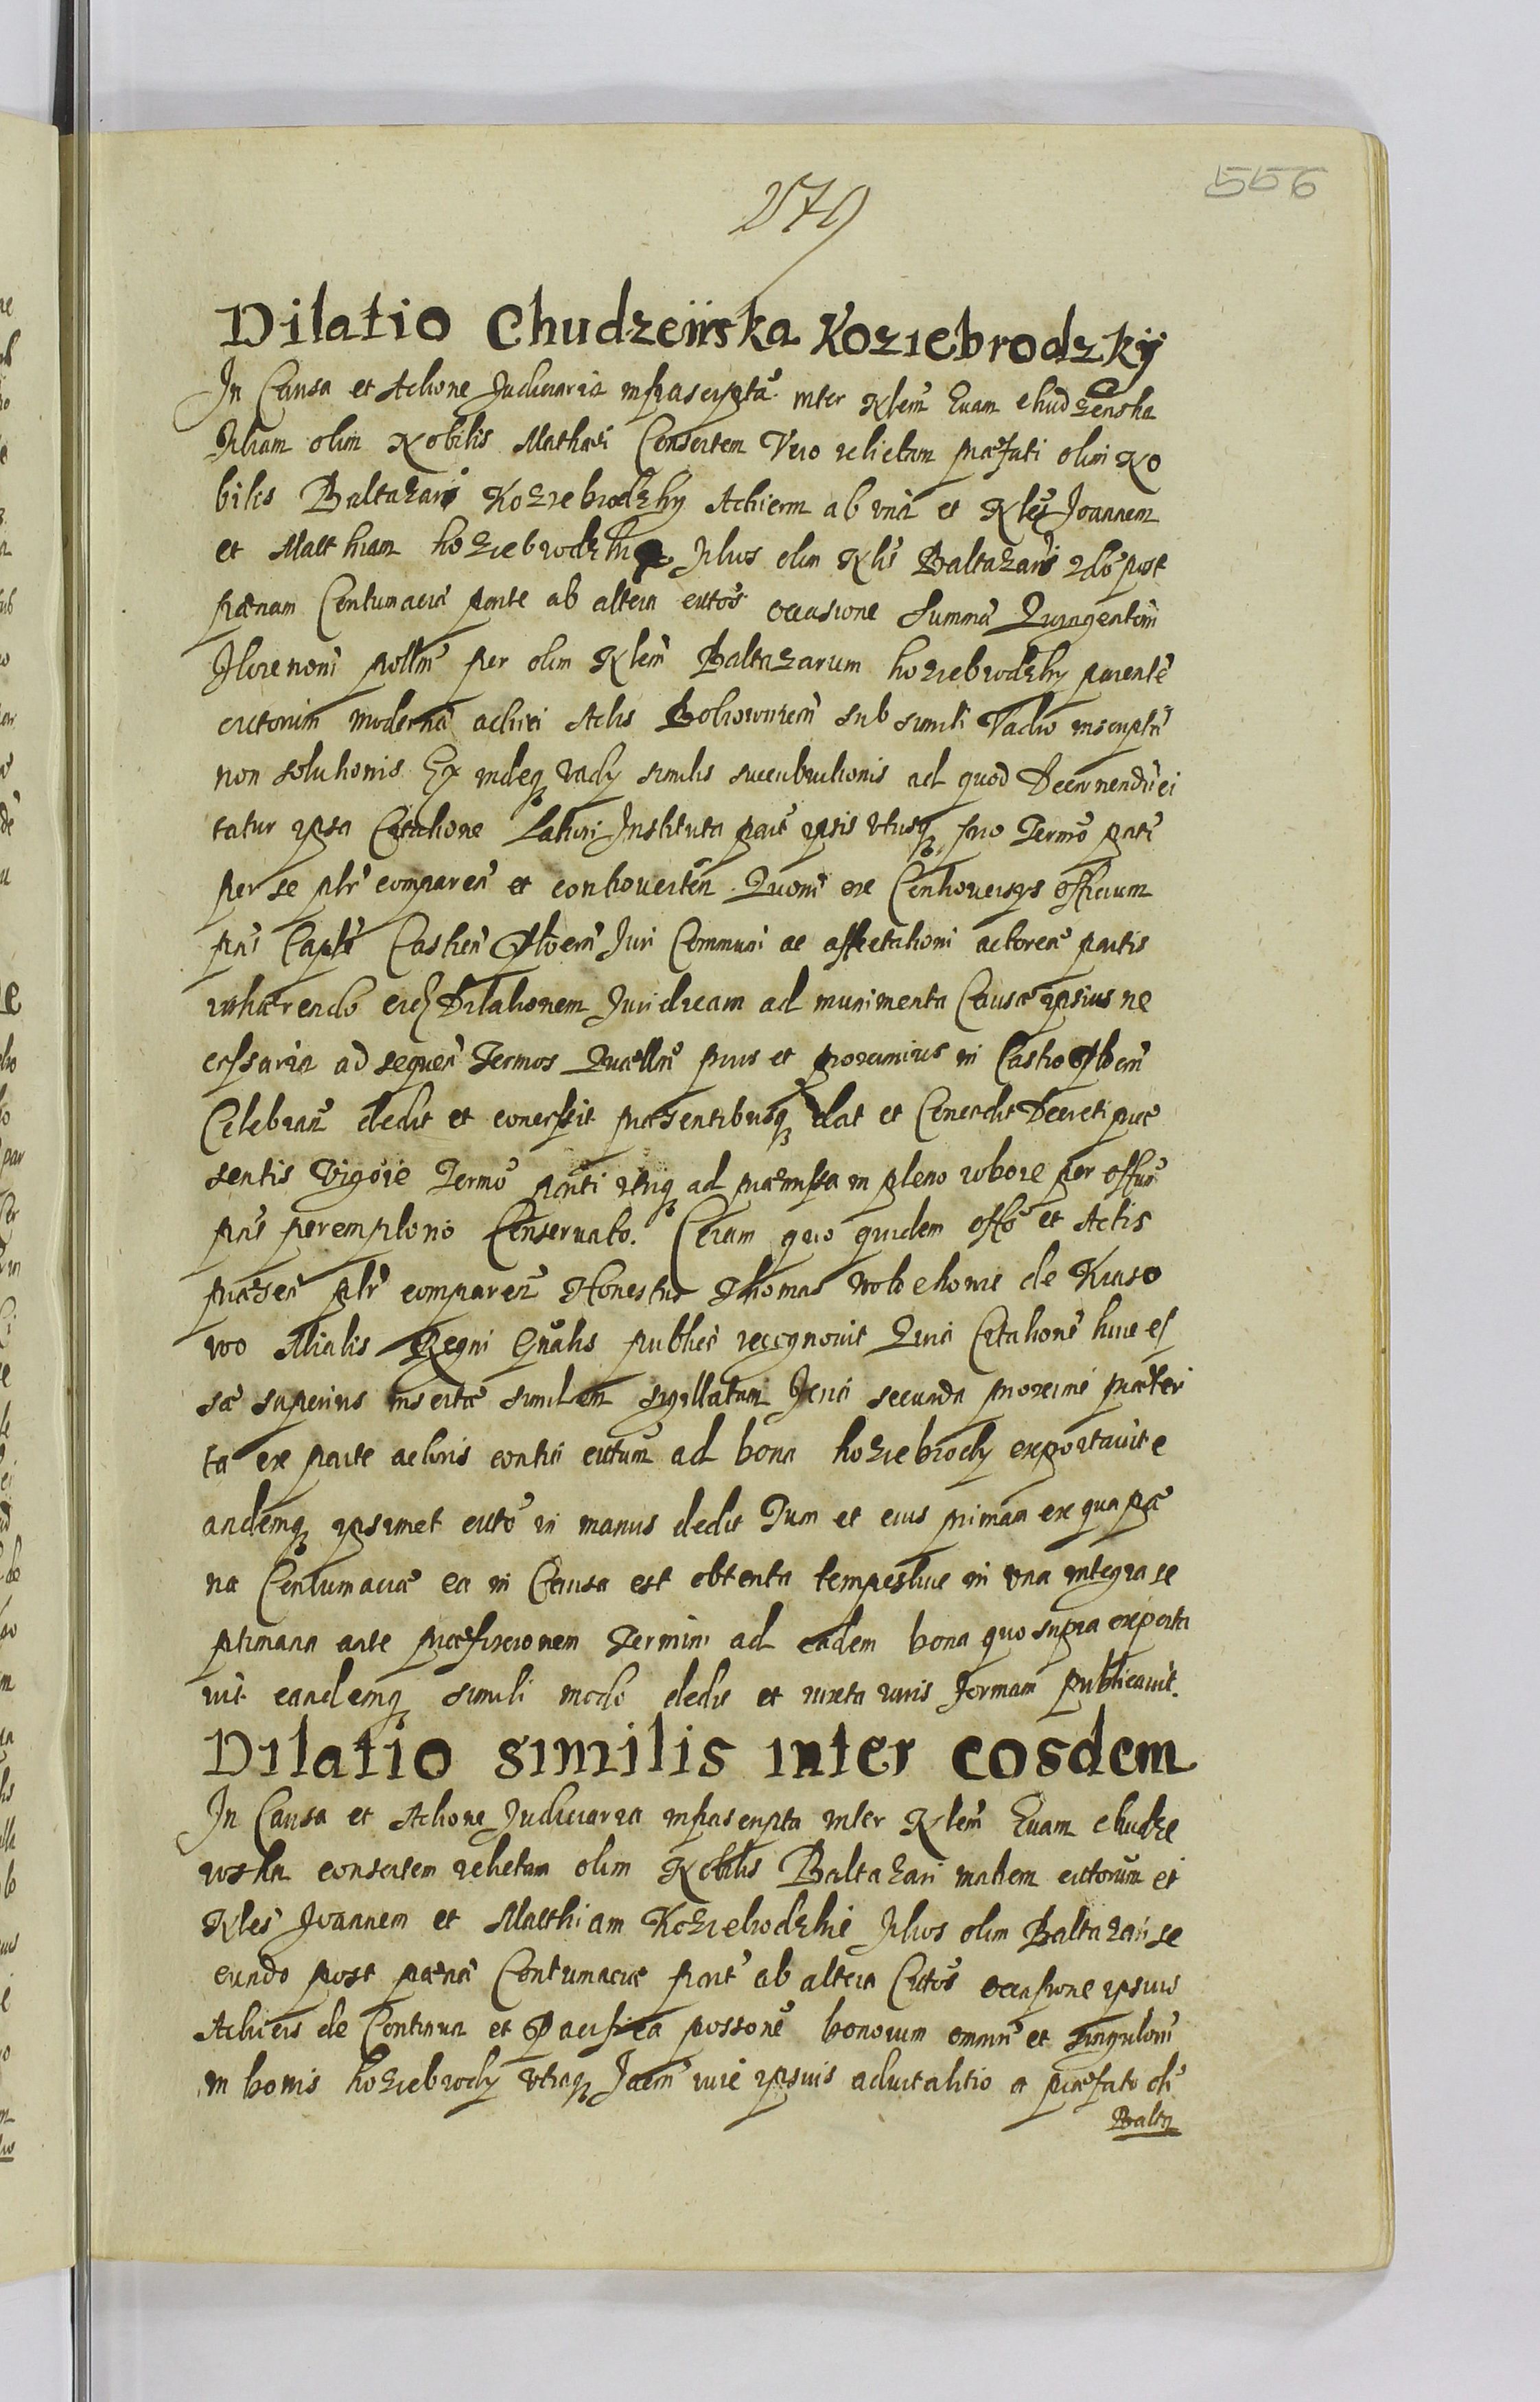 556
279
Dilatio Chudzeiiska Koziebrodzkÿ
In Causa et Actione Judiciaria infrascripta inter Nlem Evam Chudzenska
filiam olim Nobilis Mathaei Consortem Vero relictam praefati olim No
bilis Baltazari Koziebrodzky Actricem ab una et Nles Joannem
et Matthiam Koziebrodzkie filios olim Nlis Baltazaris 2do post
paenam Contumaciae parte ab altera cittos occasione summae Quingentoru
florenoru pollm per olim Nlem Baltazarum Koziebrodzky parente
cittorum moderna actrici Actis sub simili Vadio inscriptae
non solutionis Ex indeq vady similis succubuitionis ad quod Decernendu ci
tatur ipsa Citatione Latiori Instituta part ipsis utrisq suo Termo pnti
per se plr comparen et controverten Quoru ex Controversys officium
pns Capti Castren Juri Communi ac affectationi actoreae partis
inhaerendo eid Dilationem Juridicam ad munimenta Causae ipsius ne
cessaria ad sequen Termos Quaellm prius et proximius in Castro
Celebran dedit et concessit praesentibusq dat et Concedit Decreti prae
sentis Vigore Termo pnti utriq ad praemissa in pleno robore per offm
pns peremptorio Conservato. Coram quo quidem offo et Actis
praesen plr comparen Honestus Thomas de Kraso
wo Mialis Regni Gnalis publice recognovit Quia Citatione huic ca
sae superius insertae similem sigillatam feria secunda proxime praeteri
ta ex parte actoris contra cittum ad bona Koziebrody exportavit e
andemq ipsimet citto in manus dedit Tum et eius primam ex qua pae
na Contumaciae ea in Causa est obtenta tempestive in una integra se
ptimana ante praefixionem Termini ad eadem bona quo supra exporta
vit eandemq simili modo dedit et iuxta iuris formam publicavit.
Dilatio similis inter eosdem
In Causa et Actione Judiciaria infrascripta inter Nlem Evam Chudze
wska consortem relictam olim Nobilis Baltazari matrem cittorum et
Nles Joannem et Matthiam Koziebrodzkie filios olim Baltazari se
cundo post paena Contumaciae part ab altera Cittos occasione ipsius
Actricis de Continua et Pacifica possone bonorum omniu et singuloru
in bonis Koziebrody utraq Jacen iure ipsius advitalitio a praefato oli
Balta